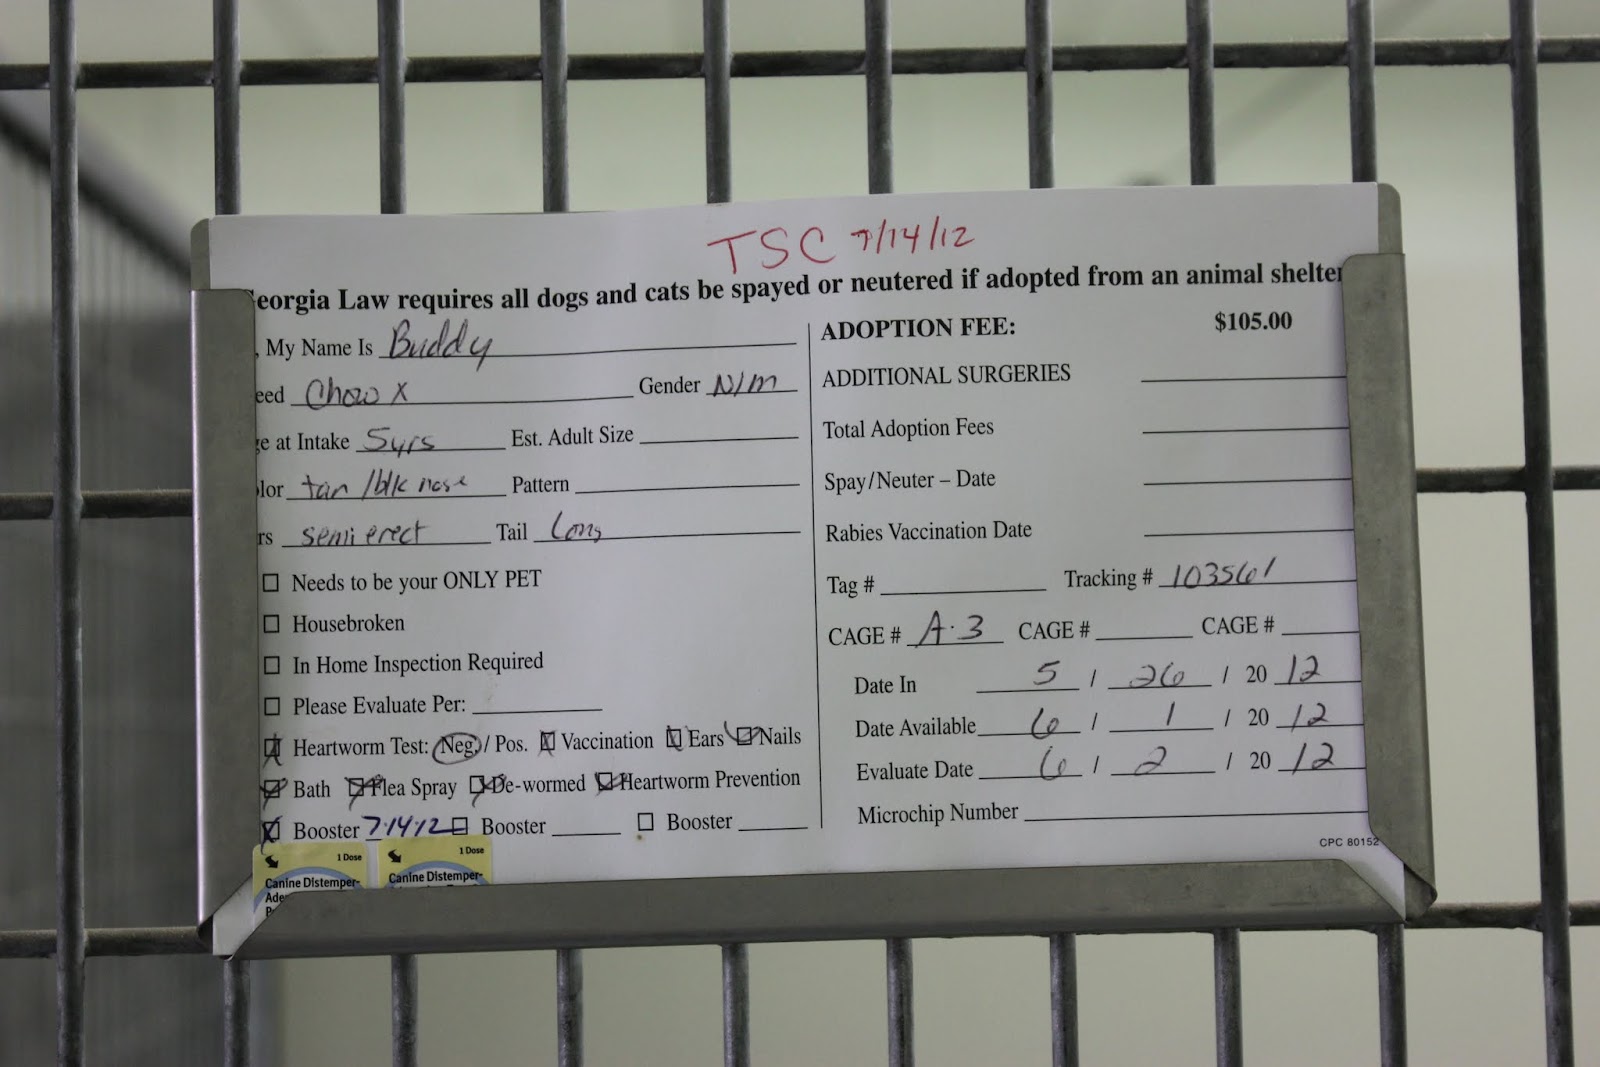 TSC 7/14/12
eorgia Law requires all dogs and cats be spayed or neutered if adopted from an animal shelter
, My Name Is Buddy
eed Chow X Gender N/M
ge at Intake 5yrs Est. Adult Size
lor tan/blk nose Pattern
rs semi erect Tail Long
Needs to be your ONLY PET
Housebroken
In Home Inspection Required
Please Evaluate Per:
Heartworm Test: Neg. / Pos. Vaccination Ears Nails
Bath Flea Spray De-wormed Heartworm Prevention
Booster 7·14·12 Booster Booster
1 Dose 1 Dose
Canine Distemper- Canine Distemper-
Ade
ADOPTION FEE: $105.00
ADDITIONAL SURGERIES
Total Adoption Fees
Spay/Neuter – Date
Rabies Vaccination Date
Tag # Tracking # 103561
CAGE # A·3 CAGE # CAGE #
Date In 5 / 26 / 20 12
Date Available 6 / 1 / 20 12
Evaluate Date 6 / 2 / 20 12
Microchip Number
CPC 80152